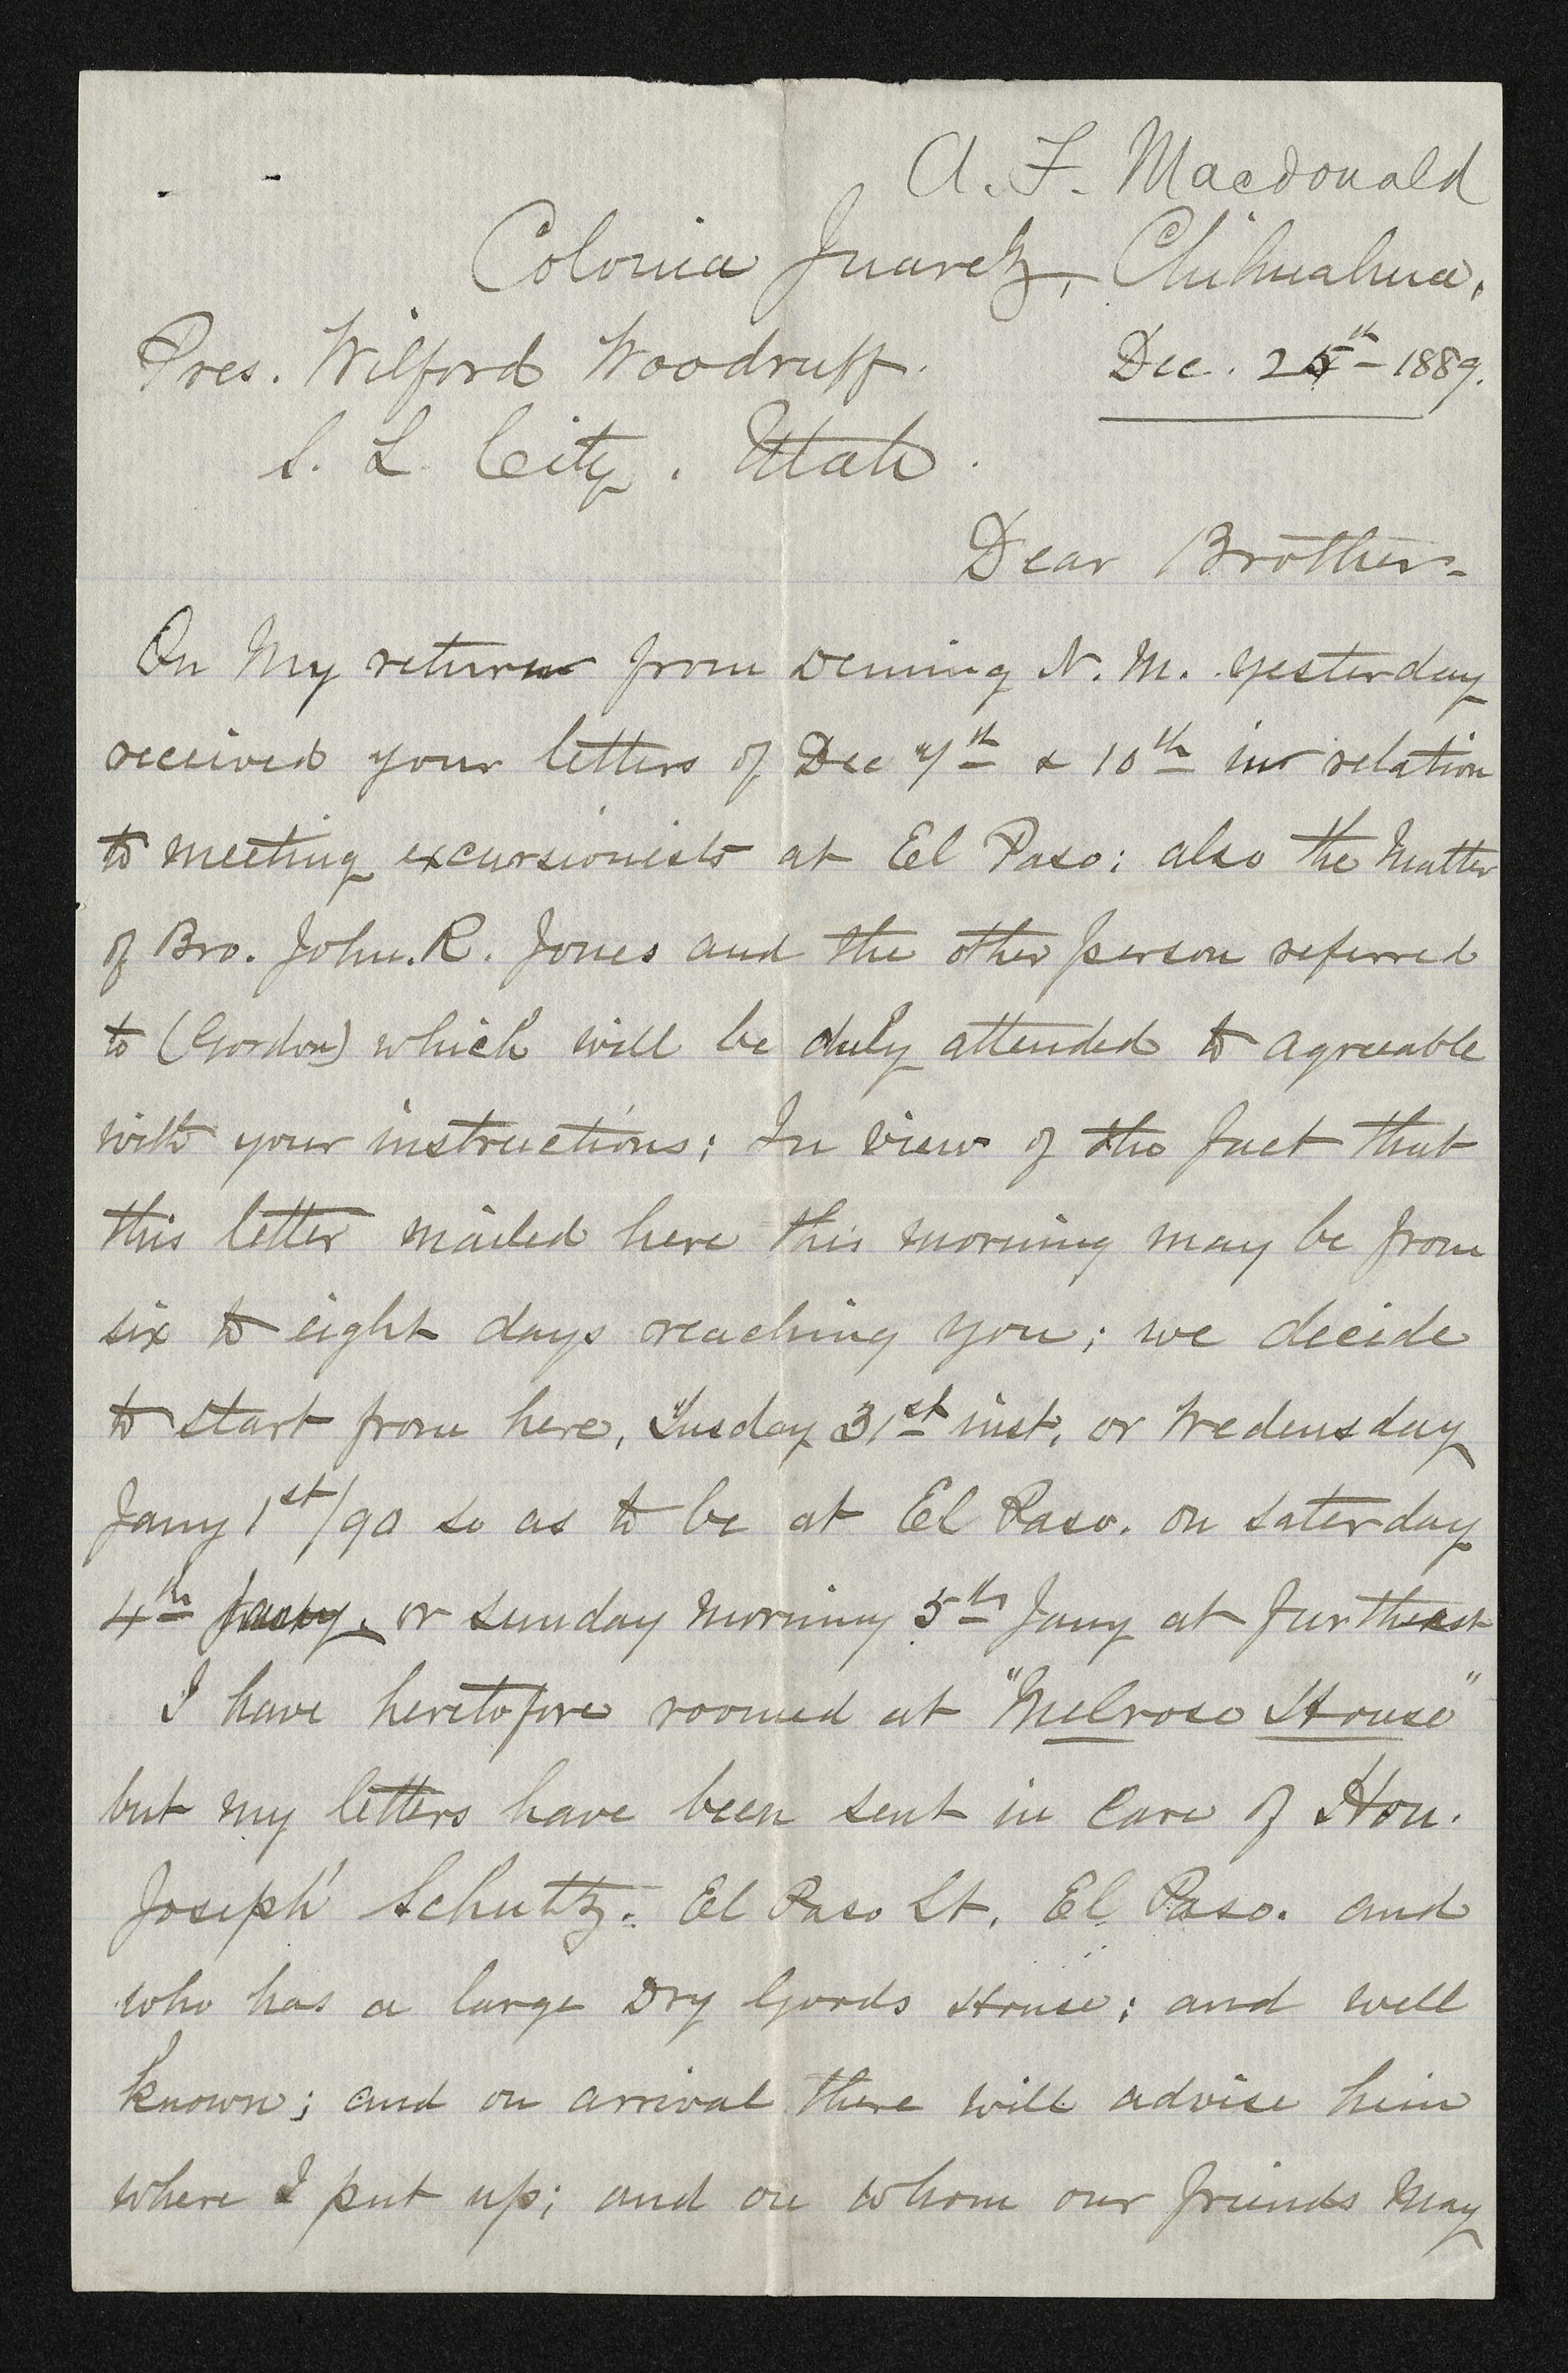 A. F. Macdonald
Colonia Juarez, Chihuahua,
Pres. Wilford Woodruff. Dec. 25th 1889.
S. L City, Utah.
Dear Brother-
On My return from Deming N. M. yesterday
received your letters of Dec 7th & 10th in relation
to meeting excursionists at El Paso; also the Matter
of Bro. John. R. Jones and the other person referred
to (Gordon) which will be duly attended to agreeable
with your instructions; In view of the fact that
this letter mailed here this morning may be from
six to eight days reaching you; we decide
to start from here, Tusday 31st inst, or Wedensday
Jany 1st/90 so as to be at El Paso. on saterday
4th Jany, or sunday morning 5th Jany at furthest
I have heretofore roomed at "Melrose House"
but my letters have been sent in care of Hon.
Joseph Schutz. El Paso St, El Paso. and
who has a large Dry Goods House; and well
known; and on arrival there will advise him
where I put up; and on whom our friends May